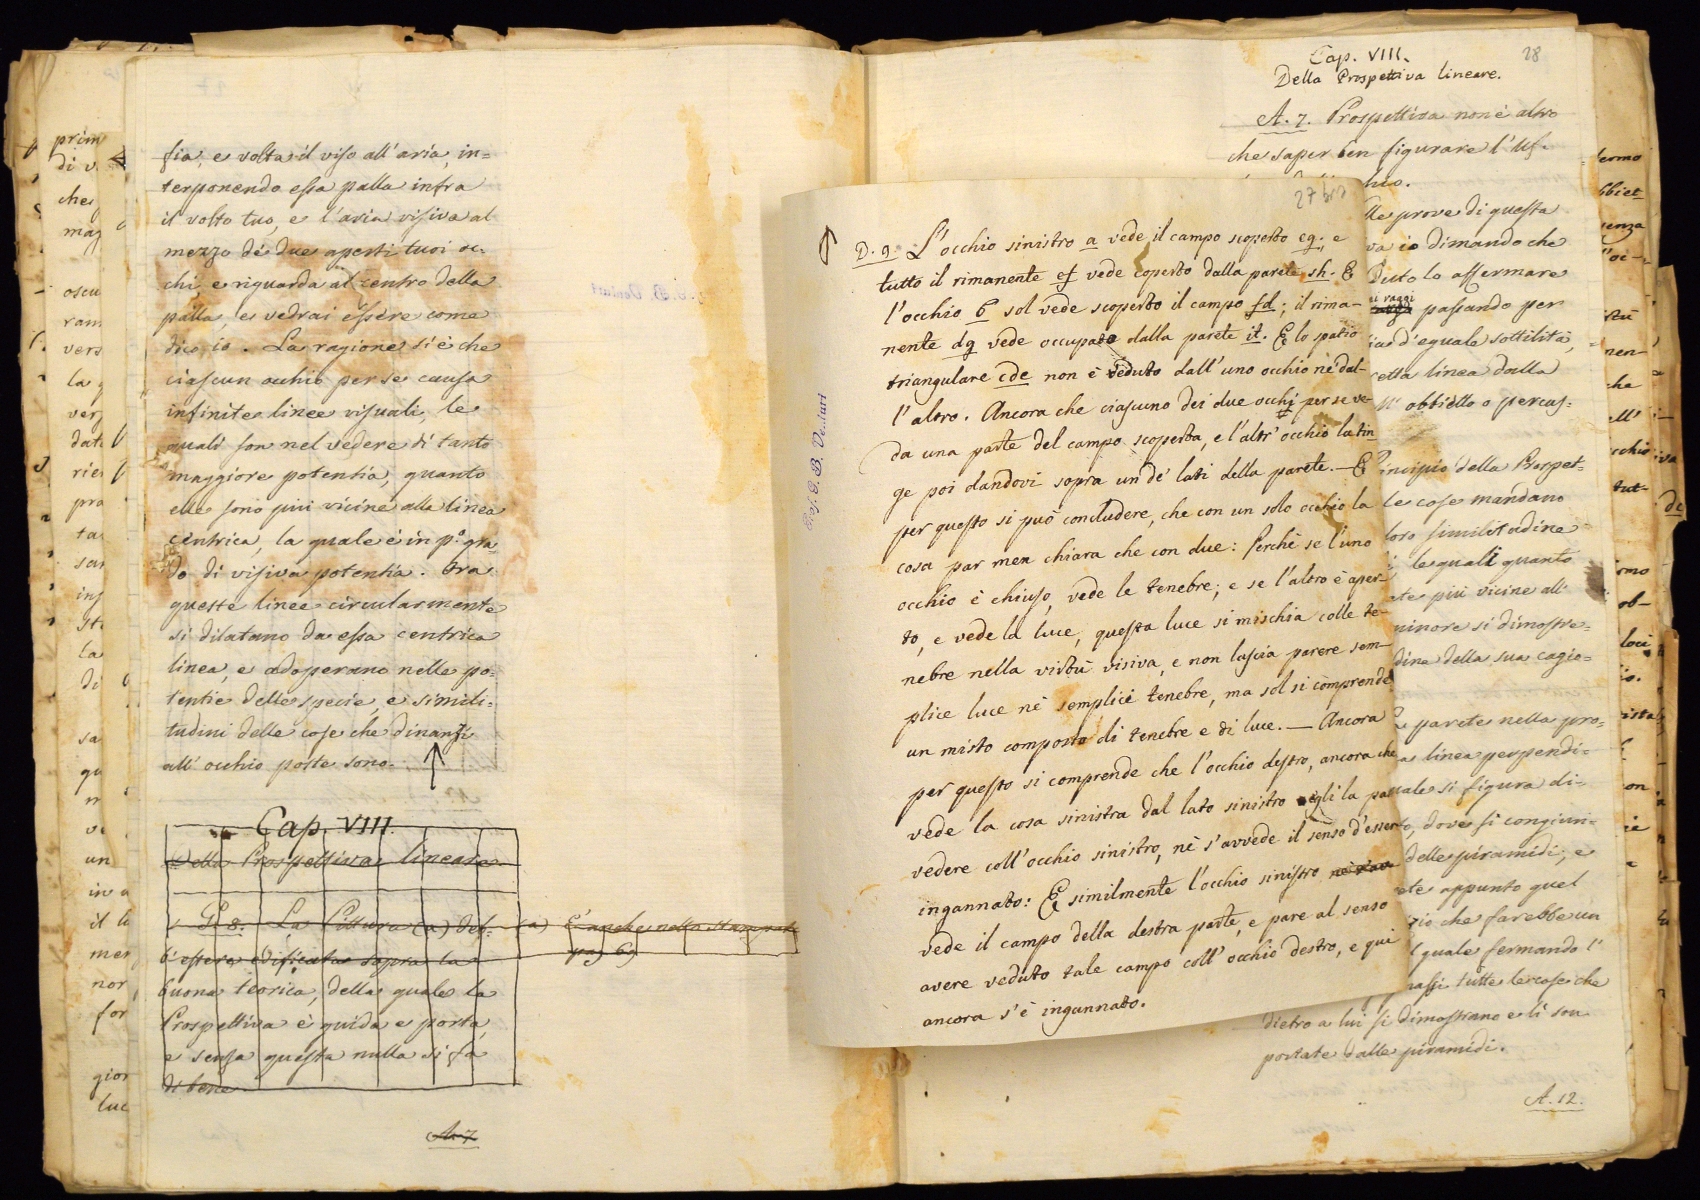 fia, e volta il viso all'aria, in=
terponendo essa palla infra
il volto tuo, e l'aria visiva al
mezzo de' due aperti tuoi oc-
chi, e riguarda al centro della
palla, e vedrai essere come
dico io. La ragione si è che
ciascun occhio per se causa
infinite linee visuali, le
quali son nel vedere di tanto
maggiore potentia, quanto
elle sono piu vicine alla linea
centrica, la quale è in p.º gra-
do di visiva potentia. Ora
queste linee circularmente
si dilatano da essa centrica
linea, e adoperano nelle po-
tentie delle specie, e simili-
tudini delle cose che dinanzi
all'occhio poste sono.
Cap. VIII.
Della Prospettiva lineare
G. 8. La Pittura (a) deb-
b'essere edificata sopra la
buona teorica, della quale la
Prospettiva è guida e porta,
e senza questa nulla si fa
di bene
(a) E' anche nello stampato
pag 69
A. 7
prim
di v
che
mag
oscu
ram
vers
la
ver
dat
rie
pra
ta
sar
inf
st
la
di
sa
qu
un
in a
il l
men
nor
for
gior
luc
28
Cap. VIII.
Della Prospettiva lineare.
A. 7. Prospettiva non è altro
che saper ben figurare l'uf-
hio.
lle prove di questa
va io dimando che
duto lo affermare
i raggi
passando per
d'eguale sottilità,
retta linea dalla
obbietto o percus=
incipio della Prospet=
le cose mandano
loro similitudine
le quali quanto
piu vicine all'
minore si dimostre=
dine della sua cagio=
parete nella pro=
linea perpendi=
uale si figura di=
to, dove si congiun=
delle piramidi, e
appunto quel
zio che farebbe un
quale fermando l'
tutte le cose che
dietro a lui si dimostrano e li son
portate dalle piramidi.
A. 12.
27 bis
D. 9. L'occhio sinistro a vede il campo scoperto eg; e
tutto il rimanente ef vede coperto dalla parete sh. E
l'occhio b sol vede scoperto il campo fd; il rima-
nente dg vede occupato dalla parete it. E lo spatio
triangulare cde non è veduto dall'uno occhio nè dal-
l'altro. Ancora che ciascuno dei due occhj per se ve-
da una parte del campo scoperta, e l'altr'occhio la tin
ge poi dandovi sopra un de' lati della parete. — E
per questo si può concludere, che con un solo occhio la
cosa par men chiara che con due: Perchè se l'uno
occhio è chiuso, vede le tenebre; e se l'altro è aper-
to, e vede la luce, questa luce si mischia colle te-
nebre nella virtù visiva, e non lascia parere sem-
plice luce nè semplici tenebre, ma sol si comprende
un misto composto di tenebre e di luce. — Ancora
per questo si comprende che l'occhio destro, ancora che
vede la cosa sinistra dal lato sinistro egli la par
vedere coll'occhio sinistro, nè s'avvede il senso d'esser
ingannato: E similmente l'occhio sinistro
vede il campo della destra parte, e pare al senso
avere veduto tale campo coll'occhio destro, e qui
ancora s'è ingannato.
Prof. G. B. Venturi